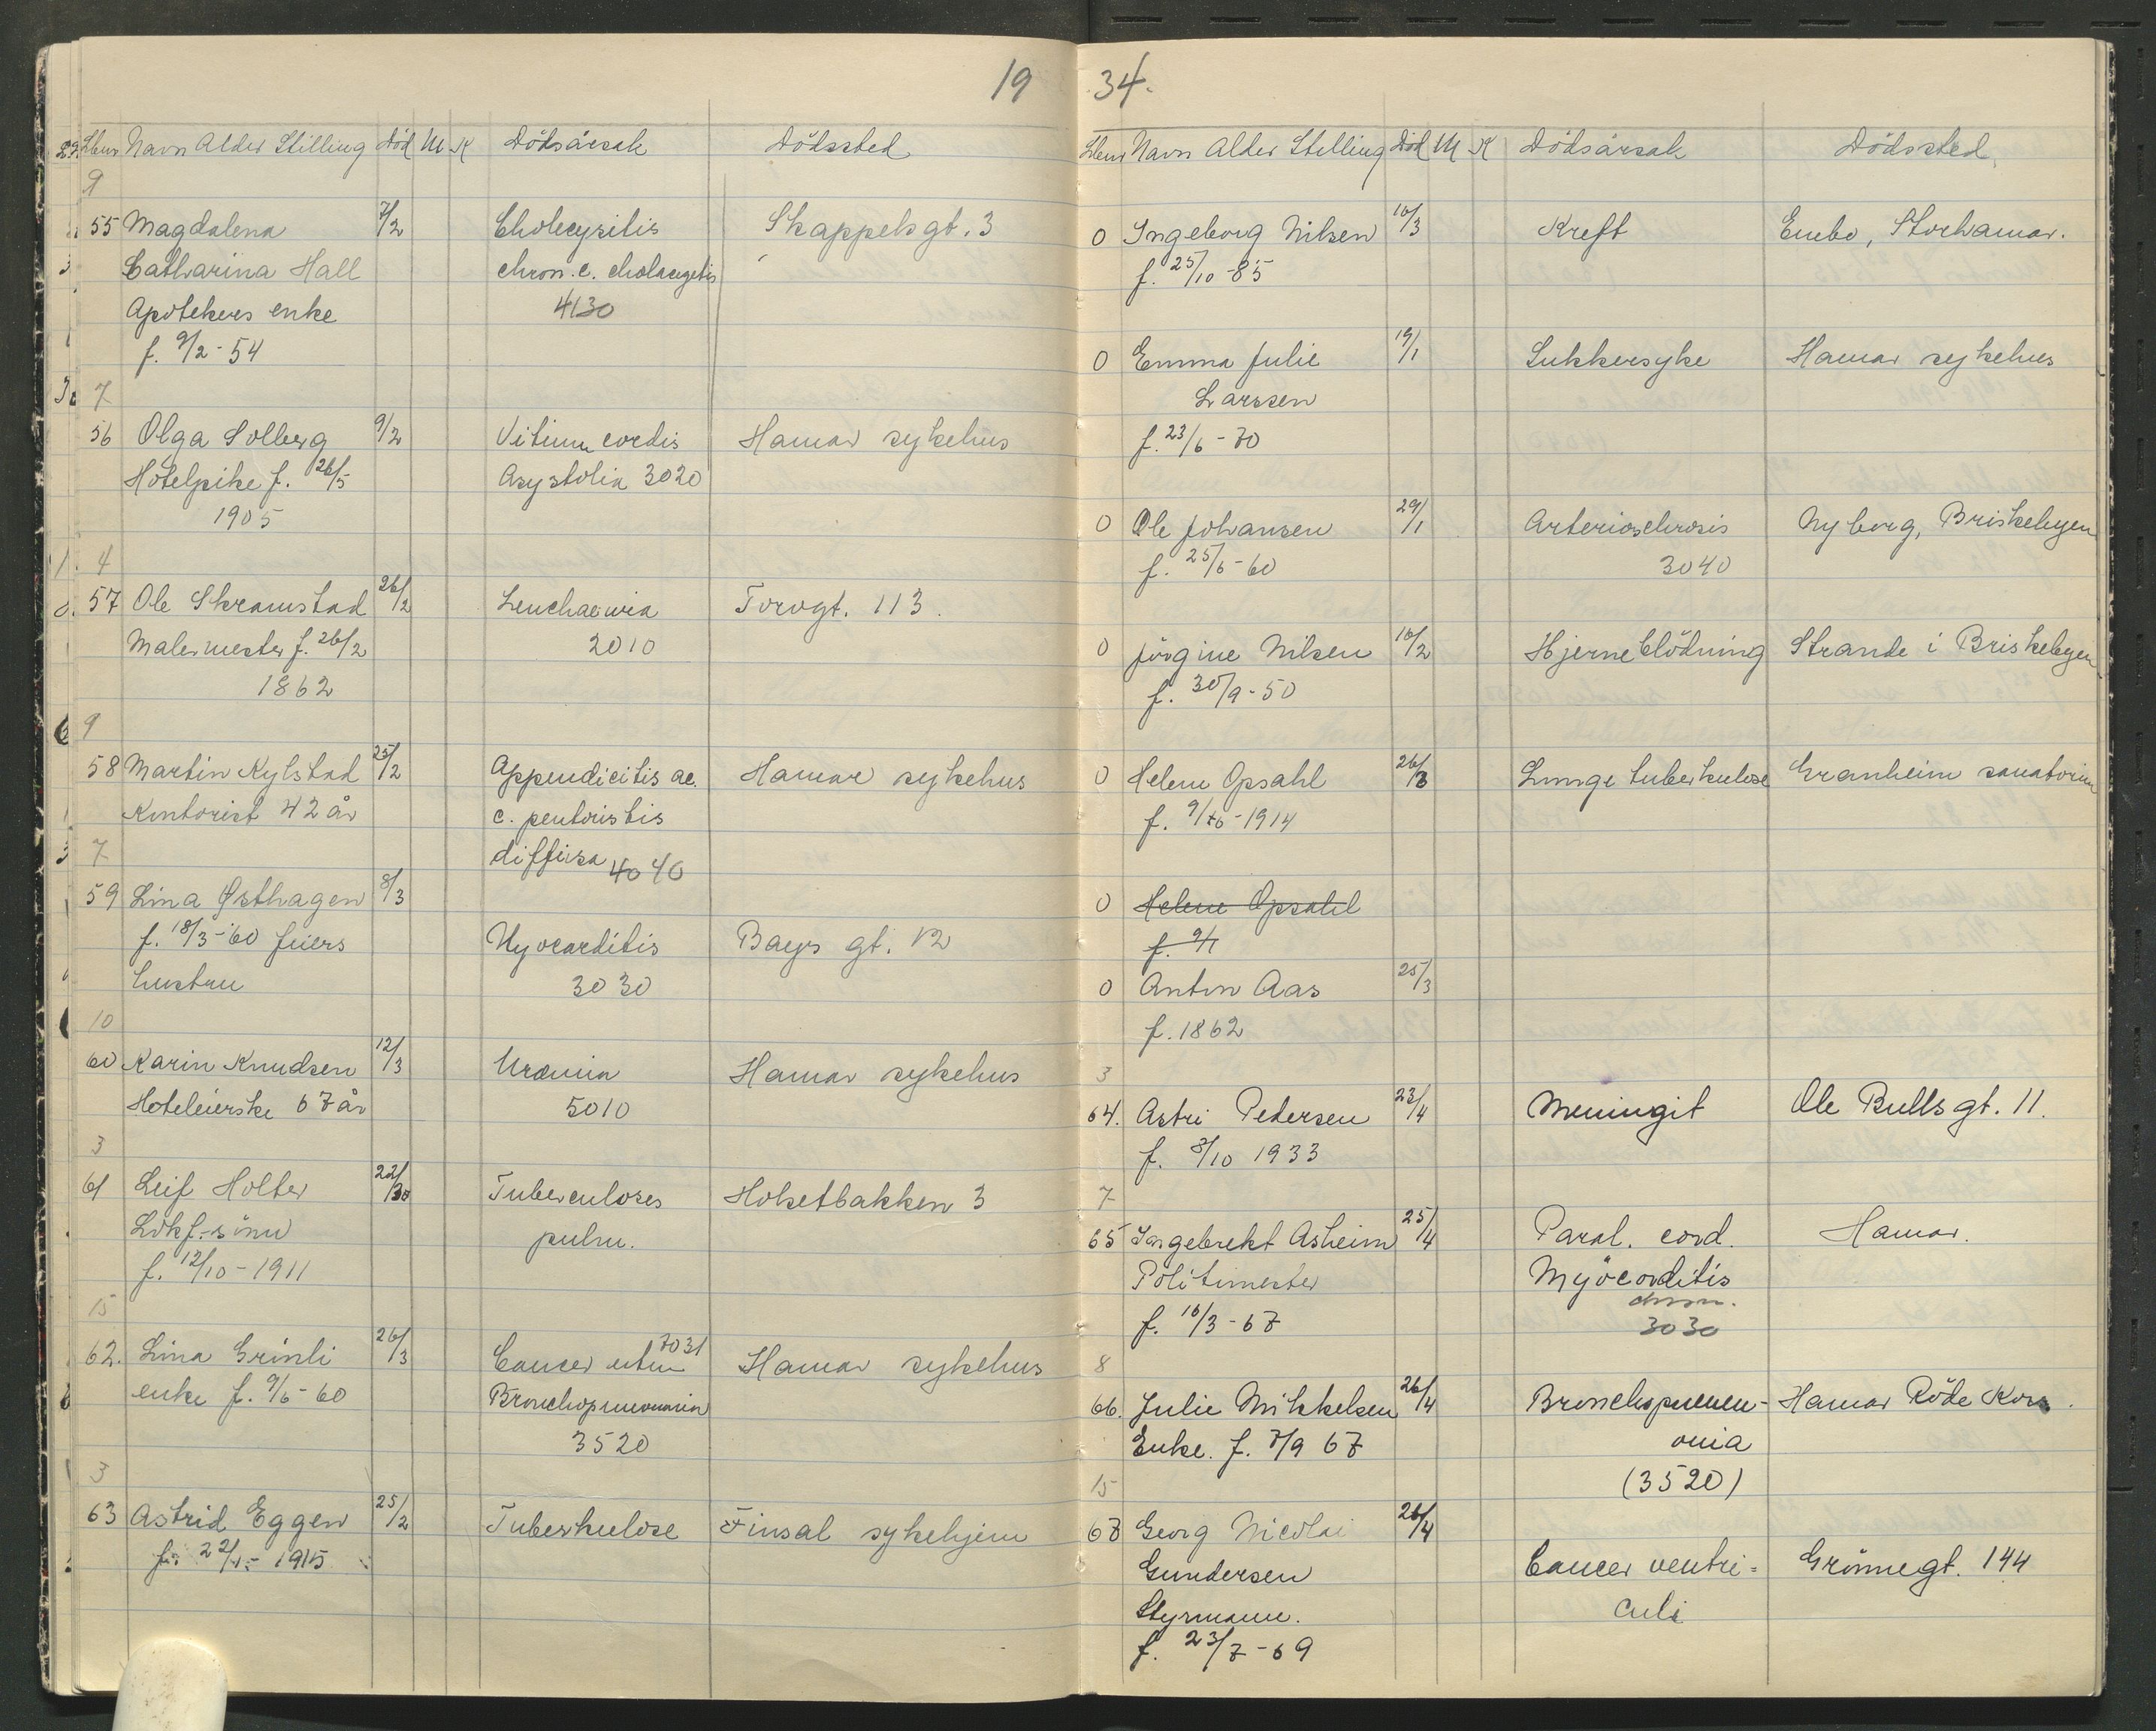 19
Lbnr Navn Alder Stilling Död M K Dödsårsak Dödssted
9
55 Magdalena 7/2 Cholecysitis Skappelsgt. 3
Catharina Hall chron. c.
Apotekers enke 4130
f. 9/2 - 54
7
56 Olga Solberg 9/2 Vitium cordis Hamar sykehus
Hotelpike f. 26/5 Asystolia 3020
1905
4
57 Ole Skramstad 26/2 Leuchaemia Torvgt. 113.
Malermester f. 26/2 2010
1862
9
58 Martin Kylstad 25/2 Appendicitis ac. Hamar sykehus
Kontorist 42 år c. peritonistis
7 diffusa 4040
59 Lina Østhagen 8/3
f. 18/3 - 60 feiers Myocarditis Bays gt. 12
hustru 3030
10
60 Karin Knudsen 12/3 Uræmia Hamar sykehus
Hoteleierske 67 år 5010
3
61 Leif Holter 22/3 Tuberculoses Holsetbakken 3
Lokf.-sönn pulm.
f. 12/10 - 1911
15
62. Lina Grinli 26/3 Cancer uteri 7031 Hamar sykehus
enke f. 9/6 - 60 Bronchopneumonia
3520
3
63 Astrid Eggen 25/2 Tuberkulose Finsal sykehjem
f. 22/1 - 1915
34.
Lbnr Navn Alder Stilling Död M K Dödsårsak Dödssted
0 Ingeborg Nilsen 10/3 Kreft Enebo, Storhamar.
f. 25/10 - 85
0 Emma Julie 19/1 Sukkersyke Hamar sykehus
Larssen
f. 23/6 - 70
0 Ole Johansen 29/1 Arteriosclerosis Nyborg, Briskebyen
f. 25/6 - 60 3040
0 Jörgine Nilsen 16/2 Hjerneblödning Strande i Briskebyen
f. 30/9 - 50
0 Helene Opsahl 26/3 Lungetuberkulose Granheim sanatorium
f. 9/10 - 1914
0 Helene Opsahl
f. 9/1
0 Anton Aas 25/3
f. 1862
3
64. Astri Pedersen 23/4 Meningit Ole Bulls gt. 11.
f. 8/10 1933
7
65 Ingebrekt Asheim 25/4 Paral. cord. Hamar.
Politimester Myocarditis
chron.
f. 16/3 - 67 3030
8
66. Julie Mikkelsen 26/4 Bronchopneum- Hamar Röde Kors.
Enke. f. 7/9 67 onia
15 (3520)
67 Georg Nicolai 26/4
Gundersen Cancer ventri= Grönnegt. 144
Styrmann. culi
f. 23/7 - 69